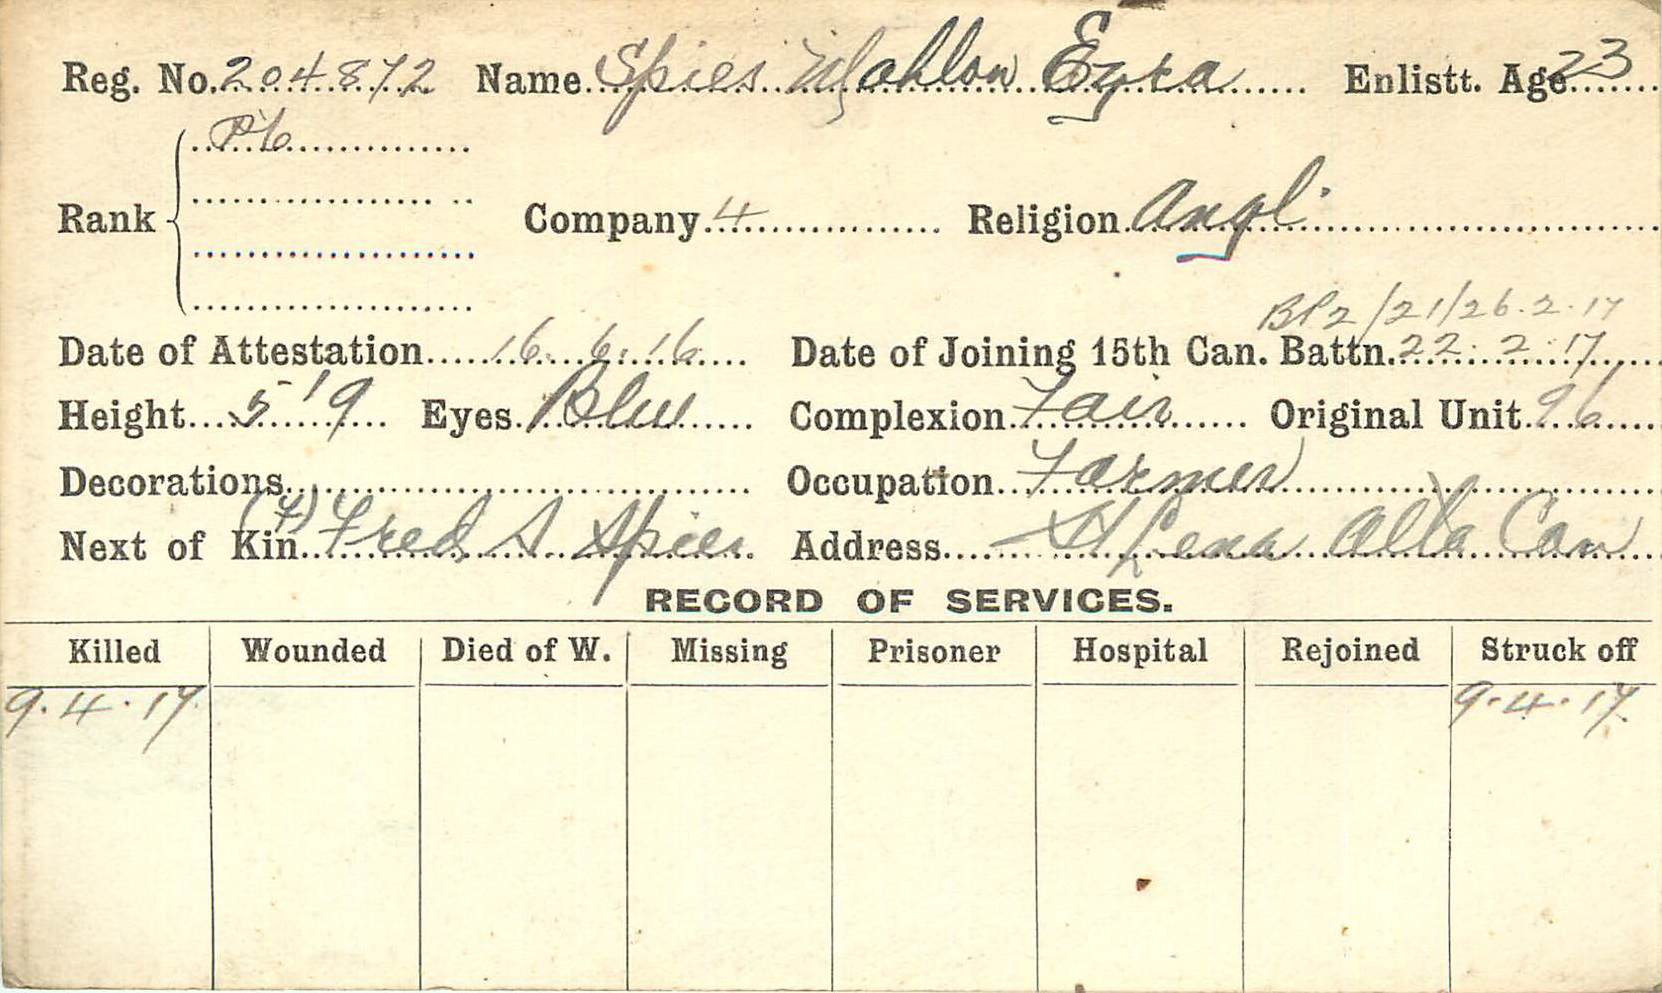 Reg. No. 204872 Name Spies Mahlon Ezra Enlistt. Age 23
Pte
Rank Company 4 Religion Angl.
BP2/21/26.2.17
Date of Attestation 16.6.16 Date of Joining 15th Can. Battn. 22.2.17
Height 5'9 Eyes Blue Complexion Fair Original Unit 96
Decorations Occupation Farmer
Next of Kin (F) Fred S Spies Address Lena Alta Can
RECORD OF SERVICES.
Killed Wounded Died of W. Missing Prisoner Hospital Rejoined Struck off
9.4.17 9.4.17